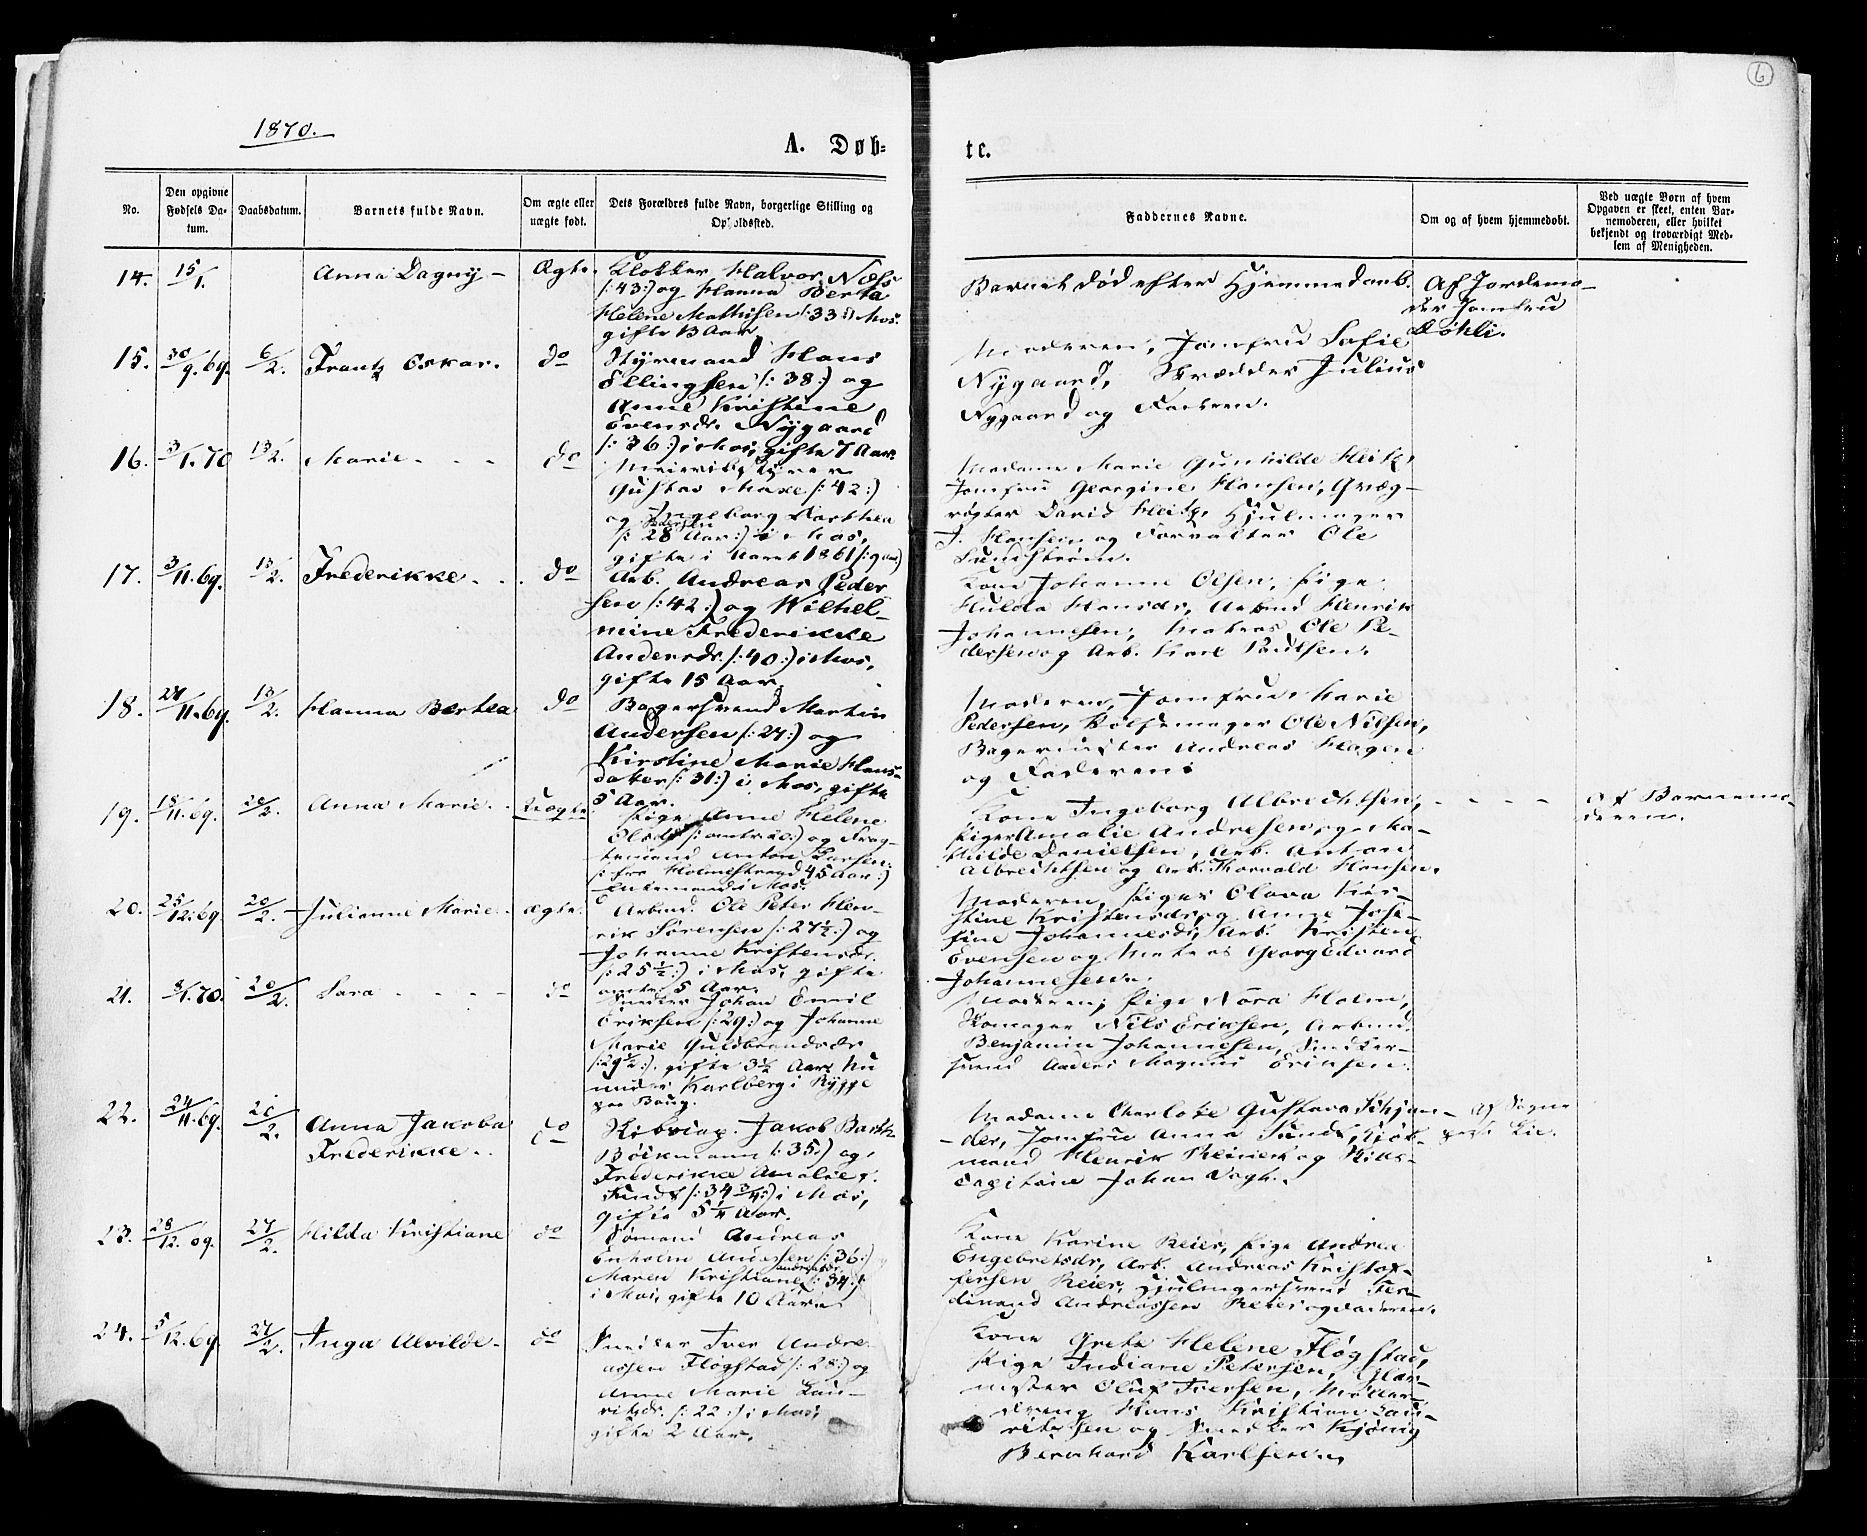 6
1870.
A. Døb-
te.
No.
Den opgivne Fødsels Da- tum.
Daabsdatum.
Barnets fulde Navn.
Om ægte eller uægte født.
Dets Forældres fulde Navn, borgerlige Stilling og Opholdssted.
Faddernes Navne.
Om og af hvem hjemmedøbt.
Ved uægte Børn af hvem Opgaven er skeet, enten Bar- nemoderen, eller hvilket bekjendt og troværdigt Med- lem af Menigheden.
14. 15/1. Anna Dagny – Ægte.
Klokker Halvor Næss
/: 43 :/ og Hanna Berta
Helene Mathisen /: 33 :/ Mos.
gifte 13 Aar
Barnet død efter Hjemmedaab.
Af Jordemo-
der Jomfru
Døhli.
15. 30/9.69. 6/2. Frantz Oskar. do
Styrmand Hans
Ellingsen /: 38 :/ og
Anne Kristine
Evensdr. Nygaard
/: 36 :/ i Mos, gifte 7 Aar.
Moderen, Jomfru Sofie
Nygaard, Skrædder Julius
Nygaard og Faderen.
16. 3/1.70 13/2. Marie - - - do
Gustav Maxe /: 42 :/
og Ingeborg Dorthea
Pedersen
/: 28 Aar :/ i Mos,
gifte i Aaret 1861 /: 9 Aar :/
Madame Marie Gunhilde Heitz,
Jomfru Georgine Hansen, Qvæg-
røgter David Heitz, Hjulmager
J. Hansen og Forvalter Ole
Sundstrøm.
17. 3/11.69. 13/2. Frederikke - . . do
Arb. Andreas Peder-
sen /: 42 :/ og Wilhel-
mine Frederikke
Andersdr. /: 40 :/ i Mos,
gifte 15 Aar.
Kone Johanne Olsen, Pige
Hulda Hansdr, Arbmd Henrik
Johannesen, Matros Ole Pe-
dersen og Arb. Karl Knudsen.
18. 24/11.69. 13/2. Hanna Bertea do
Bagersvend Martin
Andersen /: 27 :/ og
Kirstine Marie Hans-
datter /: 31 :/ i Mos, gifte
5 Aar.
Moderen, Jomfru Marie
Pedersen, Bøssemager Ole Nilsen,
Bagermester Andreas Hagen
og Faderen.
19. 18/11.69. 20/2. Anna Marie. . Uægte.
Pige Anne Helene
Olsdr /: omtrent :/ og Frag-
temand Anton Larsen
/: fra Holmestrand 45 Aar :/
Enkemand i Mos.
Kone Ingeborg Albrechtsen,
Piger Amalie Andresen og Ma-
thilde Danielsen, Arb. Anton
Albrechtsen og Arb. Thorvald Hansen.
- - - -
af Barnemo-
deren.
20. 25/12.69 20/2. Julianne Marie. . ægte.
Arbmd. Ole Peter Hen-
rik Sørensen /: 27½ :/ og
Johanne Kristensdr.
/: 25½ :/ i Mos, gifte
omtr. 5 Aar.
Moderen, Piger Olava Kir-
stine Kristensdr, og Anne Jose-
fine Johannesdr, Arb. Kristen
Evensen og Matros Georg Edvard
Johannesen.
21. 8/1.70. 20/2. Sara - - - - do
Snedker Johan Emil
Eriksen /: 29 :/ og Johanne
Marie Guldbrandsdr
/: 29½ :/, gifte 3½ Aar, nu
under Karlberg i Rygge
paa Baug.
Moderen, Pige Nora Holm,
Skomager Nils Eriksen, Arbmd.
Benjamin Johannesen, Snedker-
svend Anders Magnus Eriksen.
22. 24/11.69. 20/2. Anna Jakoba
Frederikke . . do
Skibscap. Jakob Bakke
Böckmann /: 35 :/ og
Frederikke Amalie f.
Sundt /: 34¾ :/ i Mos,
gifte 5¼ Aar.
Madame Charlotte Gustava Schjan-
der, Jomfru Anna Sundt, Kjøb-
mand Henrik Reinert og Skibs-
capitain Johan Vogt.
Af Sogne
prest Lie.
23. 28/12.69. 27/2. Hilda Kristiane do
Sømand Andreas
Enholm Andersen /: 36 :/
Maren Kristiane /: 34 :/
Andersdr
i Mos, gifte 10 Aar.
Kone Karine Reier, Pige Andrea
Engebretsdr, Arb. Andreas Kristof-
fersen Reier, Hjulmagersvend Fer-
dinand Andreassen Reier og Faderen.
24. 5/12.69. 27/2. Inga Alvilde - do
Snedker Iver Andre-
assen Fløgstad /: 28 :/ og
Anne Marie Lau-
ritzdr. /: 22 :/ i Mos,
gifte 2 Aar.
Kone Grete Helene Fløgstad,
Pige Indiane Petersen, Glar-
mester Oluf Iversen, Møller-
dreng Hans Kristian Lau-
ritzsen og Snedker Kjønig
Bernhard Karlsen.